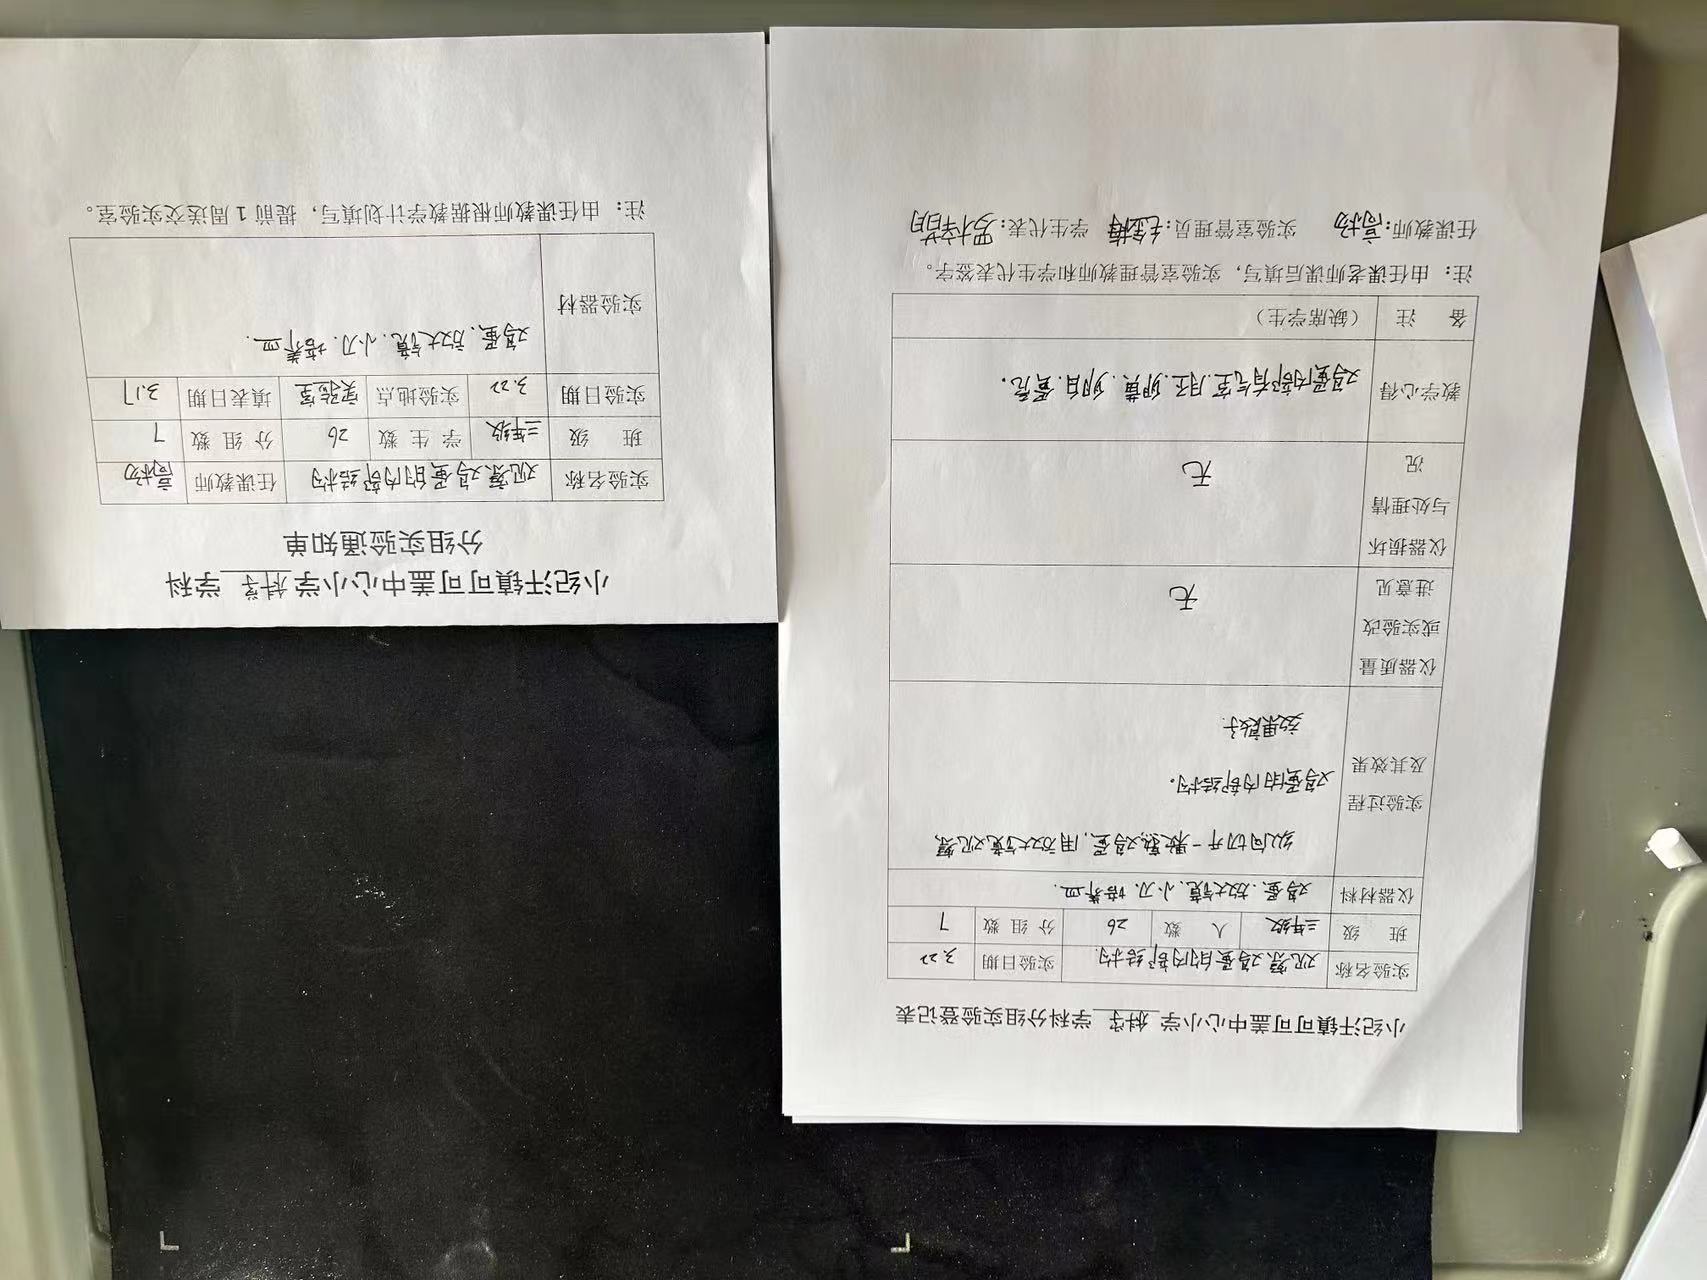 小纪汗镇可可盖中心小学 科学 学科
分组实验通知单
实验名称 观察鸡蛋的内部结构 任课教师 高杨
班 级 三年级 学 生 数 26 分 组 数 7
实验日期 3.22 实验地点 实验室 填表日期 3.17
实验器材 鸡蛋.放大镜.小刀.培养皿.
注：由任课教师根据教学计划填写，提前 1 周送交实验室。
小纪汗镇可可盖中心小学 科学 学科分组实验登记表
实验名称 观察鸡蛋的内部结构. 实验日期 3.22
班 级 三年级 人 数 26 分 组 数 7
仪器材料 鸡蛋.放大镜.小刀.培养皿.
实验过程
及其效果
纵向切开一颗熟鸡蛋,用放大镜观察
鸡蛋的内部结构。
效果较好.
仪器质量
或实验改
进意见
无
仪器损坏
与处理情
况
无
教学心得 鸡蛋内部有气室.胚.卵黄.卵白.蛋壳。
备 注 （缺席学生）
注：由任课老师课后填写，实验室管理教师和学生代表签字。
任课教师:高杨 实验室管理员: 学生代表: